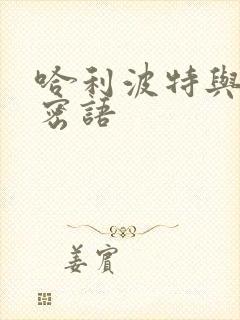 哈利波特與
密語
姜賓